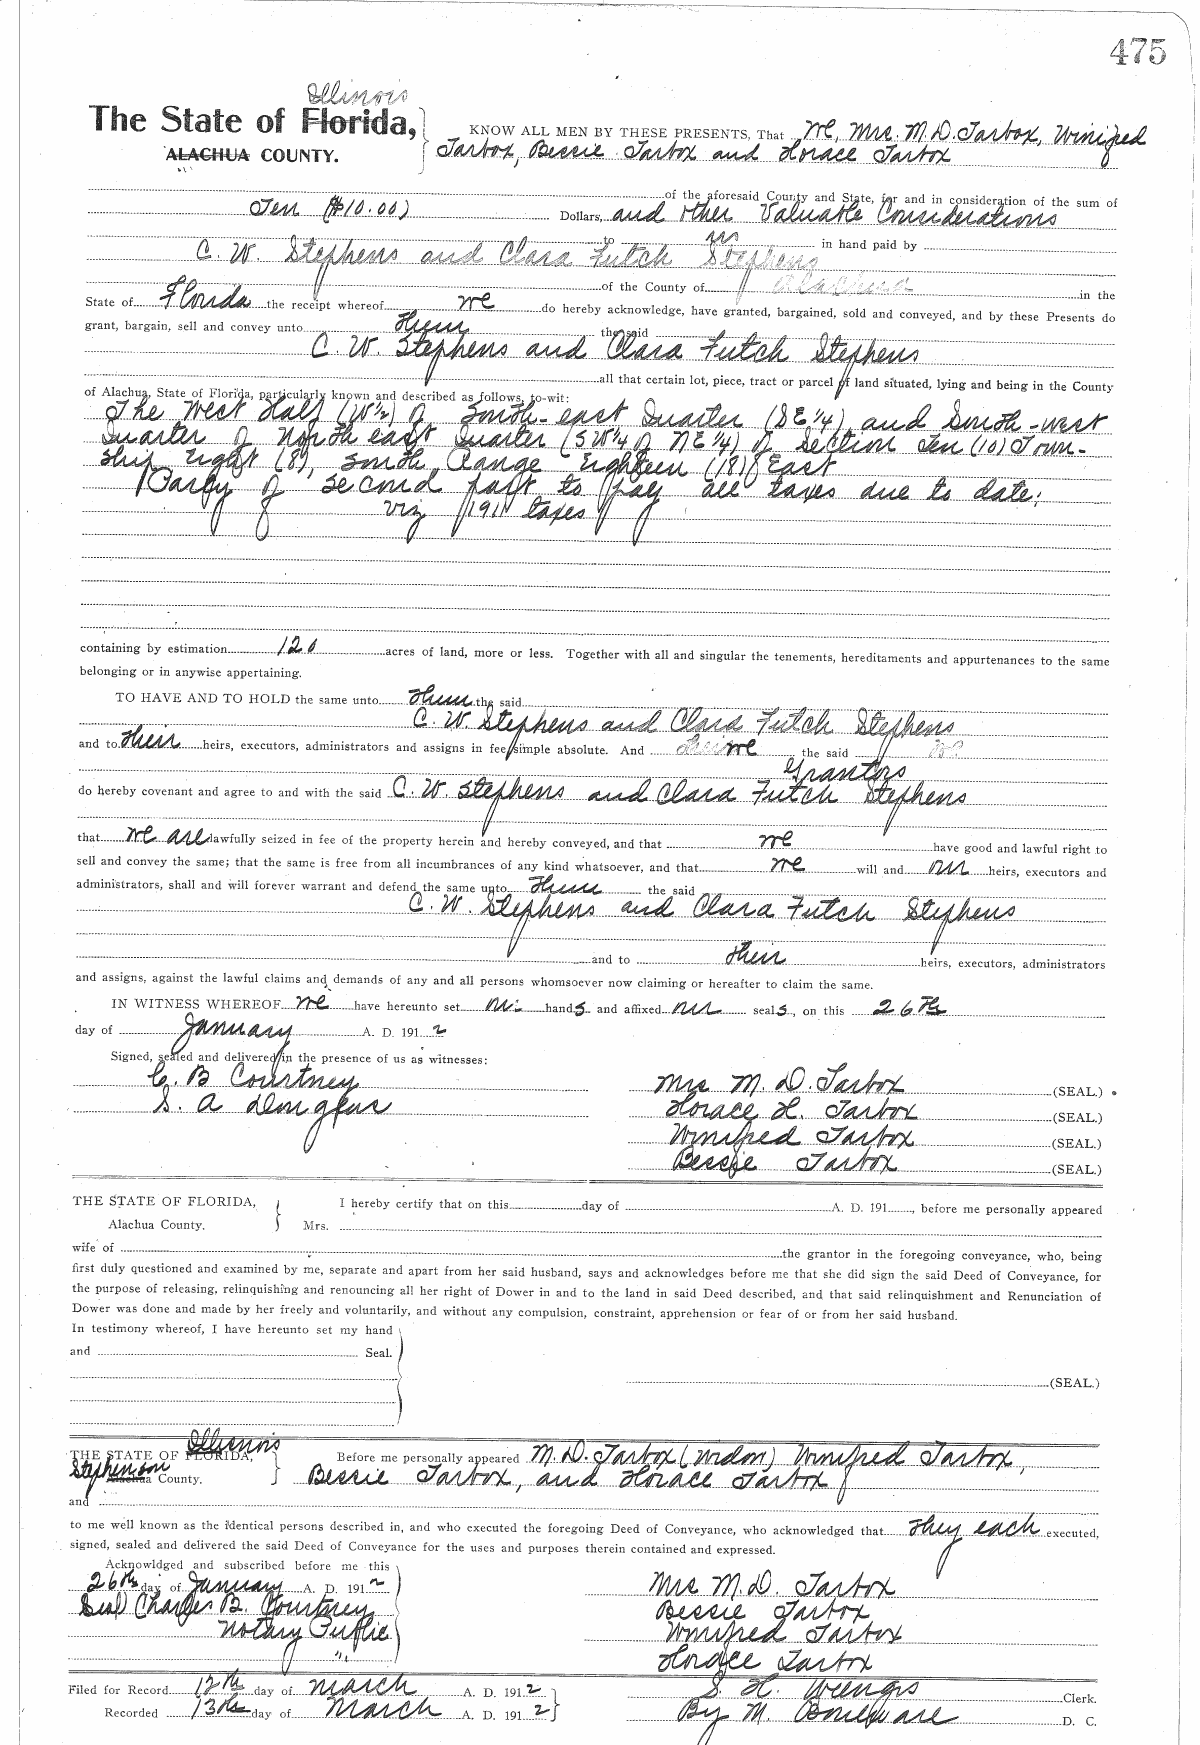 475
Illinois
The State of Florida,
ALACHUA COUNTY.
KNOW ALL MEN BY THESE PRESENTS, That We, Mrs. M. D. Tarbox, Winifred
Tarbox, Bessie Tarbox and Horace Tarbox
of the aforesaid County and State, for and in consideration of the sum of
Ten ($10.00) Dollars, and other Valuable Considerations
to us in hand paid by
C. W. Stephens and Clara Futch Stephens
of the County of Alachua in the
State of Florida the receipt whereof we do hereby acknowledge, have granted, bargained, sold and conveyed, and by these Presents do
grant, bargain, sell and convey unto them the said
C. W. Stephens and Clara Futch Stephens
all that certain lot, piece, tract or parcel of land situated, lying and being in the County
of Alachua, State of Florida, particularly known and described as follows, to-wit:
The West Half (W½) of South-east Quarter (SE¼), and South-west
Quarter of North east Quarter (SW¼ of NE¼) of Section Ten (10) Town-
ship Eight (8), South, Range Eighteen (18) East
Party of second part to pay all taxes due to date;
viz 1911 taxes
containing by estimation 120 acres of land, more or less. Together with all and singular the tenements, hereditaments and appurtenances to the same
belonging or in anywise appertaining.
TO HAVE AND TO HOLD the same unto them the said
C. W. Stephens and Clara Futch Stephens
and to their heirs, executors, administrators and assigns in fee simple absolute. And we the said
Grantors
do hereby covenant and agree to and with the said C. W. Stephens and Clara Futch Stephens
that we are lawfully seized in fee of the property herein and hereby conveyed, and that we have good and lawful right to
sell and convey the same; that the same is free from all incumbrances of any kind whatsoever, and that we will and our heirs, executors and
administrators, shall and will forever warrant and defend the same unto them the said
C. W. Stephens and Clara Futch Stephens
and to their heirs, executors, administrators
and assigns, against the lawful claims and demands of any and all persons whomsoever now claiming or hereafter to claim the same.
IN WITNESS WHEREOF we have hereunto set our hands and affixed our seals, on this 26th
day of January A. D. 1912
Signed, sealed and delivered in the presence of us as witnesses:
C. B Courtney
S. A Douglas
Mrs M. D. Tarbox (SEAL.)
Horace H. Tarbox (SEAL.)
Winifred Tarbox (SEAL.)
Bessie Tarbox (SEAL.)
THE STATE OF FLORIDA,
Alachua County.
I hereby certify that on this day of A. D. 191, before me personally appeared
Mrs.
wife of the grantor in the foregoing conveyance, who, being
first duly questioned and examined by me, separate and apart from her said husband, says and acknowledges before me that she did sign the said Deed of Conveyance, for
the purpose of releasing, relinquishing and renouncing all her right of Dower in and to the land in said Deed described, and that said relinquishment and Renunciation of
Dower was done and made by her freely and voluntarily, and without any compulsion, constraint, apprehension or fear of or from her said husband.
In testimony whereof, I have hereunto set my hand
and Seal.
(SEAL.)
Illinois
THE STATE OF FLORIDA,
Stephenson Alachua County.
Before me personally appeared M. D. Tarbox (widow) Winifred Tarbox,
Bessie Tarbox, and Horace Tarbox
and
to me well known as the identical persons described in, and who executed the foregoing Deed of Conveyance, who acknowledged that they each executed,
signed, sealed and delivered the said Deed of Conveyance for the uses and purposes therein contained and expressed.
Acknowldged and subscribed before me this
26th day of January A. D. 1912
Seal Charles B. Courtney
Notary Public
Mrs M. D. Tarbox
Bessie Tarbox
Winifred Tarbox
Horace Tarbox
Filed for Record 12th day of March A. D. 1912
Recorded 13th day of March A. D. 1912
S. H. Wienges Clerk.
By M. Boulware D. C.